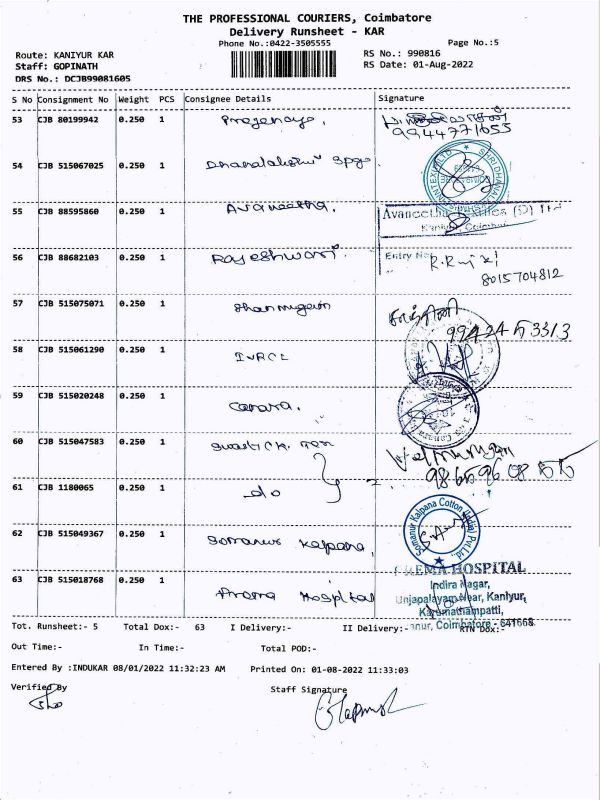 THE PROFESSIONAL COURIERS, Coimbatore
Delivery Runsheet - KAR
Phone No.:0422-3505555 Page No.:5
Route: KANIYUR KAR RS No.: 990816
Staff: GOPINATH RS Date: 01-Aug-2022
DRS No.: DCJB99081605
S No Consignment No Weight PCS Consignee Details Signature
53 CJB 80199942 0.250 1
9944771655
54 CJB 515067025 0.250 1 Dhanalakshmi Spg.
55 CJB 88595860 0.250 1 Avaneetha.
56 CJB 88682103 0.250 1 Rajeshwari. Entry No
8015704812
57 CJB 515075071 0.250 1 Shanmugam
58 CJB 515061290 0.250 1 IVRCL
59 CJB 515020248 0.250 1 Canara.
60 CJB 515047583 0.250 1
61 CJB 1180065 0.250 1 do
62 CJB 515049367 0.250 1 Somanur Kalpana, Somanur Kalpana Cotton (India) Pvt Ltd.,
63 CJB 515018768 0.250 1 Prema Hospital
PREMA HOSPITAL
Indira Nagar,
Unjapalayam Near, Kaniyur,
Karumathampatti,
Coimbatore - 641668
Tot. Runsheet:- 5 Total Dox:- 63 I Delivery:- II Delivery:- RTN Dox:-
Out Time:- In Time:- Total POD:-
Entered By :INDUKAR 08/01/2022 11:32:23 AM Printed On: 01-08-2022 11:33:03
Verified By Staff Signature